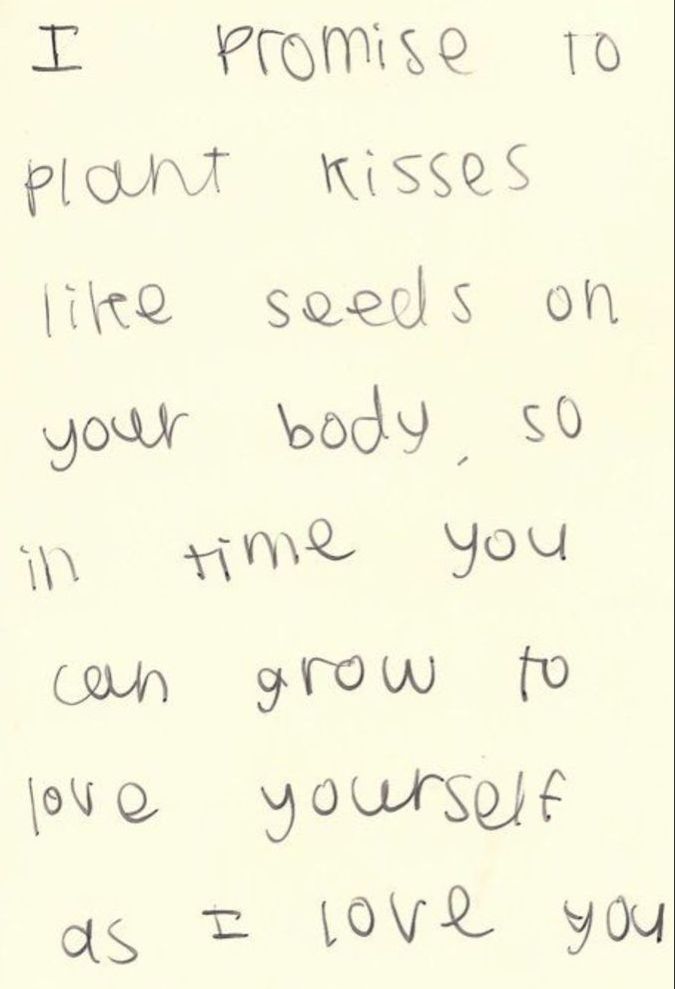 I promise to
plant kisses
like seeds on
your body, so
in time you
can grow to
love yourself
as I love you